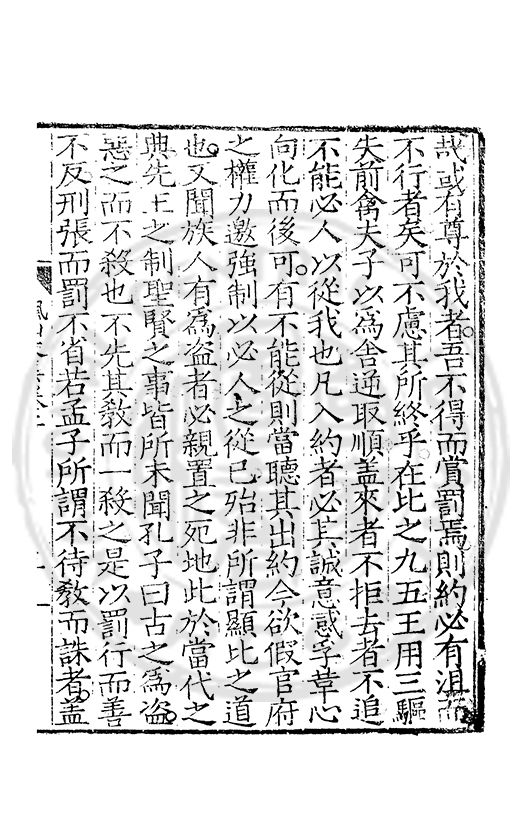 哉或有尊於我者吾不得而賞罰焉則約必有沮而
不行者矣可不慮其所終乎在比之九五王用三驅
失前禽夫子以為舍逆取順盖來者不拒去者不追
不能必人以從我也凡入約者必其誠意感孚革心
向化而後可有不能從則當聽其出約今欲假官府
之權力邀強制以必人之從已殆非所謂顯比之道
也又聞族人有為盗者必親置之死地此於當代之
典先王之制聖賢之事皆所未聞孔子曰古之為盗
惡之而不殺也不先其教而一殺之是以罰行而善
不反刑張而罰不省若孟子所謂不待教而誅者盖